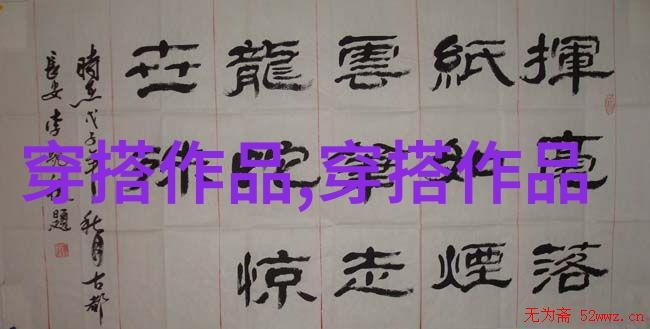 揮毫落
紙如煙
雲筆走
龍蛇惊
世
時在戊子年秋月古都
長安李題
穿搭作品,穿搭作品
无为斋 52wwz.cn